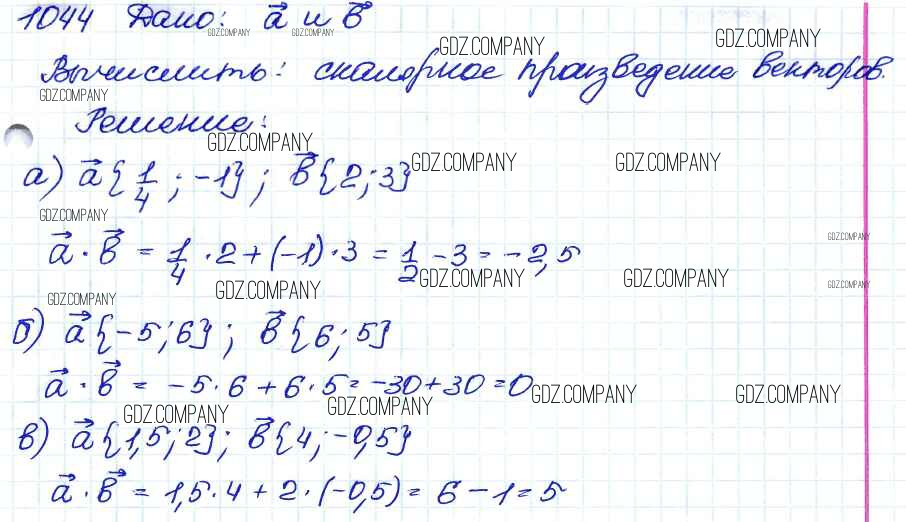 1044 Дано: a⃗ и b⃗
GDZ.COMPANY GDZ.COMPANY GDZ.COMPANY GDZ.COMPANY
Вычислить: скалярное произведение векторов.
GDZ.COMPANY
Решение:
GDZ.COMPANY GDZ.COMPANY GDZ.COMPANY
а) a⃗ {1/4; -1}; b⃗ {2; 3}
GDZ.COMPANY
a⃗ · b⃗ = 1/4 · 2 + (-1) · 3 = 1/2 - 3 = -2,5
GDZ.COMPANY
GDZ.COMPANY GDZ.COMPANY GDZ.COMPANY GDZ.COMPANY
GDZ.COMPANY
б) a⃗ {-5; 6}; b⃗ {6; 5}
a⃗ · b⃗ = -5 · 6 + 6 · 5 = -30 + 30 = 0
GDZ.COMPANY GDZ.COMPANY GDZ.COMPANY GDZ.COMPANY
в) a⃗ {1,5; 2}; b⃗ {4; -0,5}
a⃗ · b⃗ = 1,5 · 4 + 2 · (-0,5) = 6 - 1 = 5